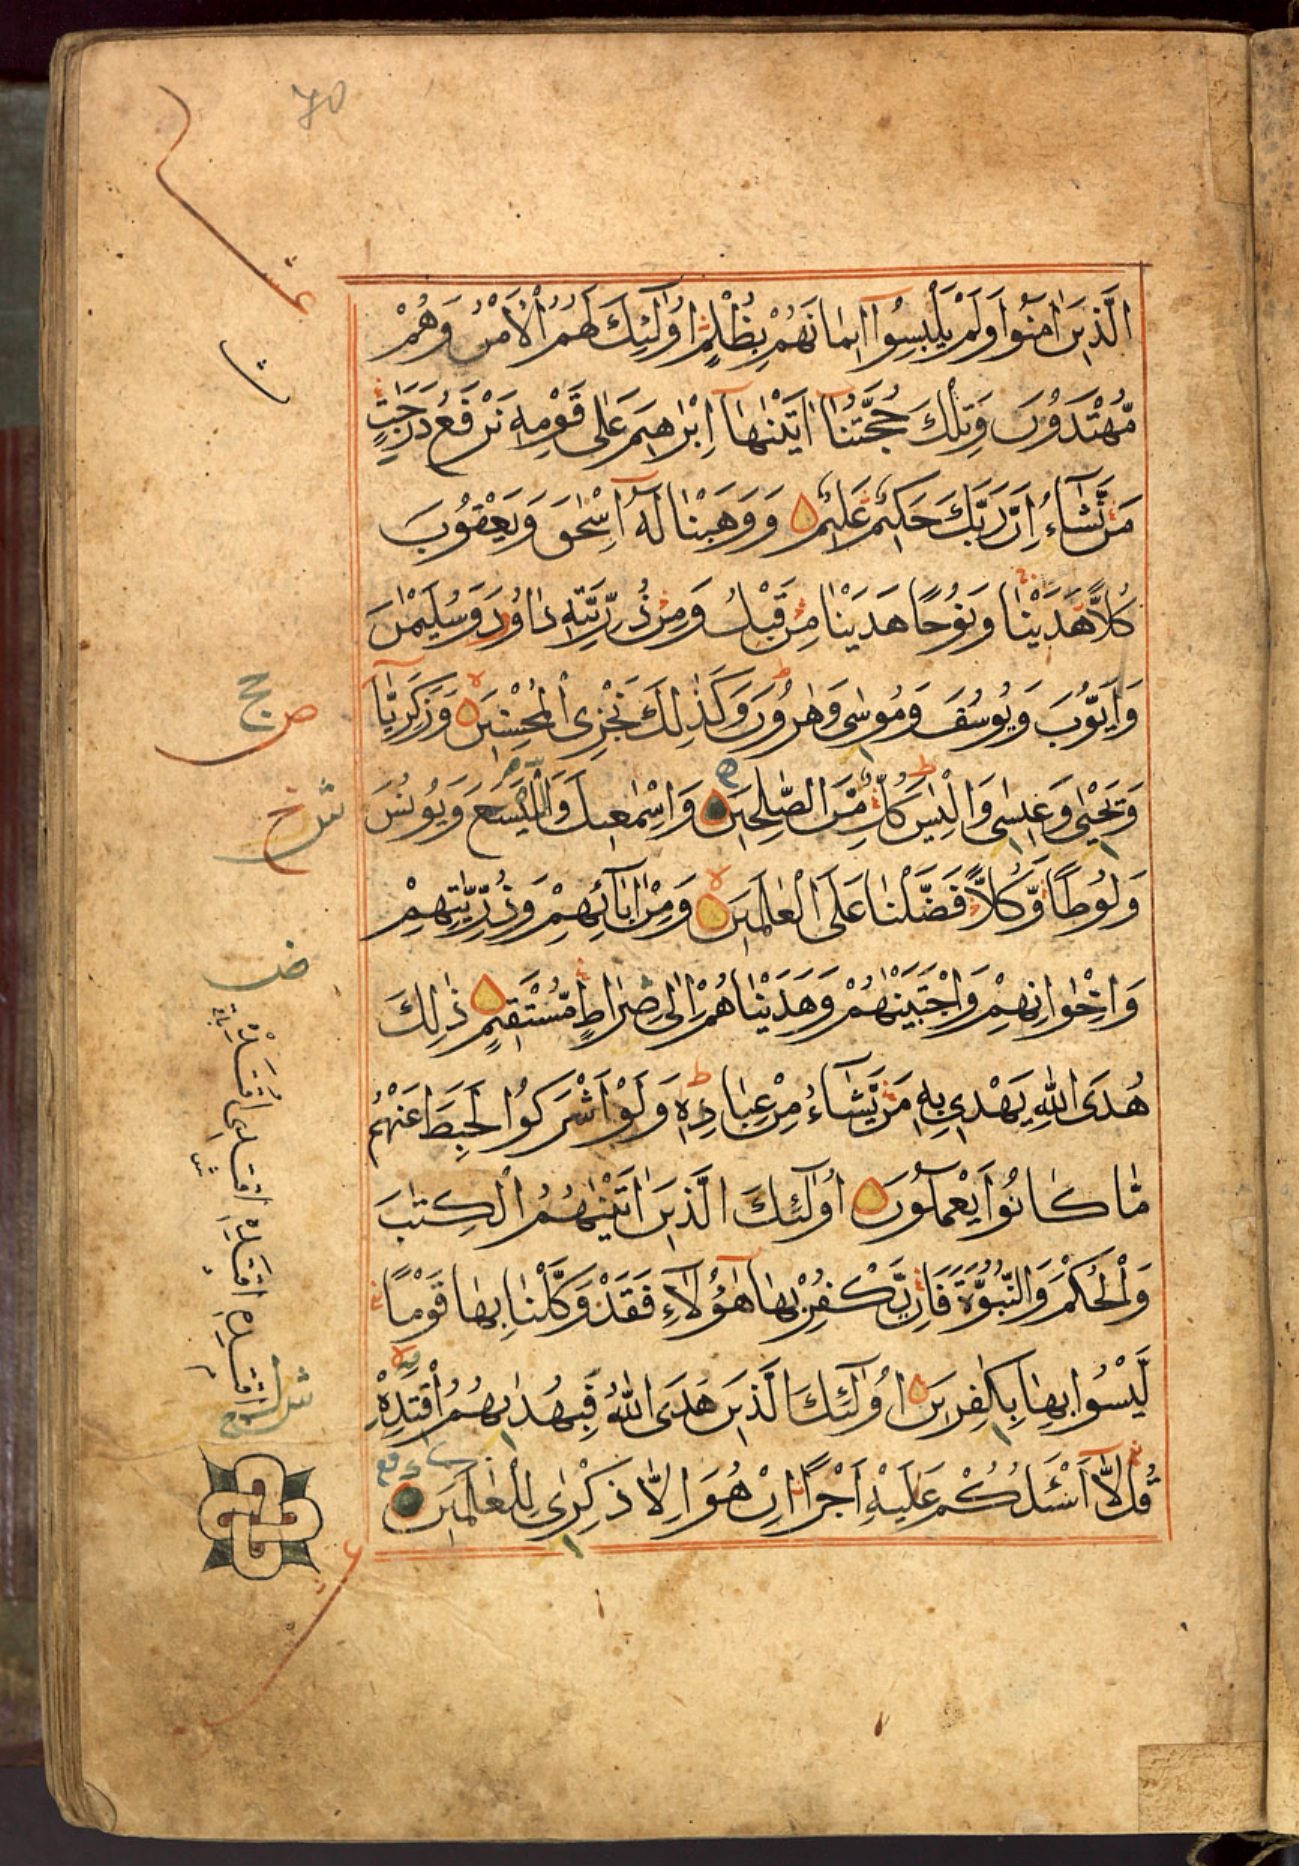 70
الَّذِينَ اٰمَنُوا وَلَمْ يَلْبِسُوا اٖيمَانَهُمْ بِظُلْمٍ اُولٰٓئِكَ لَهُمُ الْاَمْنُ وَهُمْ
مُّهْتَدُونَ وَتِلْكَ حُجَّتُنَآ اٰتَيْنٰهَآ اِبْرٰهٖيمَ عَلٰى قَوْمِهٖ نَرْفَعُ دَرَجٰتٍ
مَّن نَّشَآءُ اِنَّ رَبَّكَ حَكٖيمٌ عَلٖيمٌ وَوَهَبْنَا لَهٗٓ اِسْحٰقَ وَيَعْقُوبَ
كُلًّا هَدَيْنَا وَنُوحًا هَدَيْنَا مِن قَبْلُ وَمِن ذُرِّيَّتِهٖ دَاوٗدَ وَسُلَيْمٰنَ
وَاَيُّوبَ وَيُوسُفَ وَمُوسٰى وَهٰرُونَ وَكَذٰلِكَ نَجْزِى الْمُحْسِنٖينَ وَزَكَرِيَّآ
وَيَحْيٰى وَعٖيسٰى وَاِلْيَاسَ كُلٌّ مِّنَ الصّٰلِحٖينَ وَاِسْمٰعٖيلَ وَالْيَسَعَ وَيُونُسَ
وَلُوطًا وَّكُلًّا فَضَّلْنَا عَلَى الْعَالَمٖينَ وَمِنْ اٰبَآئِهِمْ وَذُرِّيّٰتِهِمْ
وَاِخْوَانِهِمْ وَاجْتَبَيْنٰهُمْ وَهَدَيْنَاهُمْ اِلٰى صِرَاطٍ مُّسْتَقٖيمٍ ذٰلِكَ
هُدَى اللّٰهِ يَهْدٖى بِهٖ مَن يَّشَآءُ مِنْ عِبَادِهٖ وَلَوْ اَشْرَكُوا لَحَبِطَ عَنْهُمْ
مَّا كَانُوا يَعْمَلُونَ اُولٰٓئِكَ الَّذٖينَ اٰتَيْنٰهُمُ الْكِتٰبَ
وَالْحُكْمَ وَالنُّبُوَّةَ فَاِن يَّكْفُرْ بِهَا هٰٓؤُلَآءِ فَقَدْ وَكَّلْنَا بِهَا قَوْمًا
لَّيْسُوا بِهَا بِكٰفِرٖينَ اُولٰٓئِكَ الَّذٖينَ هَدَى اللّٰهُ فَبِهُدٰىهُمُ اقْتَدِهْ
قُل لَّآ اَسْـَٔلُكُمْ عَلَيْهِ اَجْرًا اِنْ هُوَ اِلَّا ذِكْرٰى لِلْعَالَمٖينَ